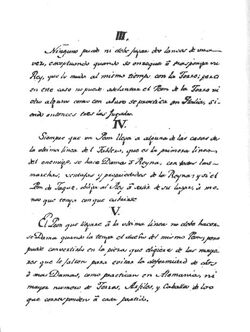 III.
Ninguno puede ni debe jugar dos lances de una
vez, exceptuando quando de enroque ó trasponga su
Rey, que lo muda al mismo tiempo con la Torre; pero
en este caso no puede adelantar el Peon de la Torre ni
otro alguno como con abuso se practica en Italia, si-
endo entonces tres las Jugadas.
IV.
Siempre que un Peon llega a alguna de las casas de
la ultima linea del Tablero, que es la primera linea
del enemigo, se hace Dama ó Reyna, con todas las mar-
chas, ventajas y propiedades de la Reyna; y si el
Peon da Jaque, obliga al Rey á salir de su lugar, á me-
nos que tenga con que cubrirse.
V.
El Peon que llegare á la ultima linea no debe hacer-
se Dama quando la tenga el dueño del mismo Peon; pero
puede convertirlo en la pieza que eligiere de las mayo-
res que le falten para evitar la deformidad de dos
ó mas Damas, como practican en Alemania, ni
mayor numero de Torres, Arfiles, y Caballos de los
que corresponden á cada partido.